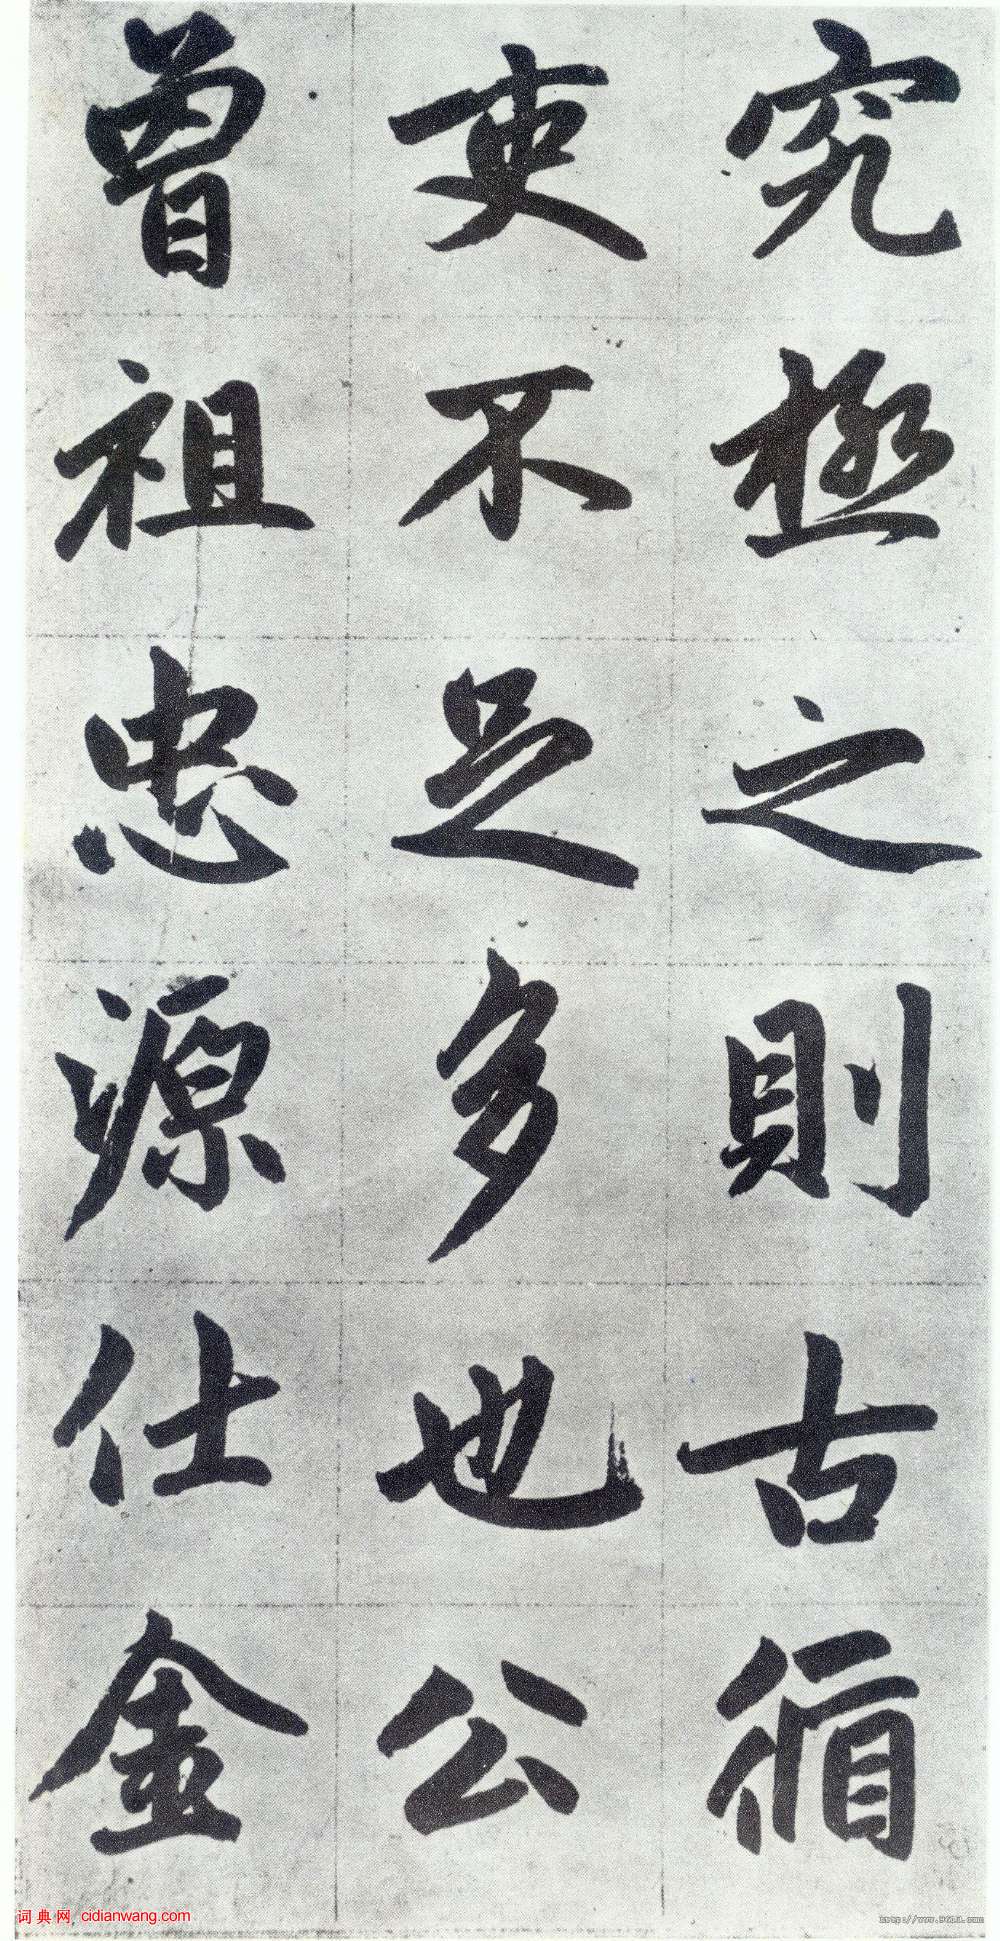 究極之則古循
吏不足多也公
曾祖忠源仕金
词典网 cidianwang.com